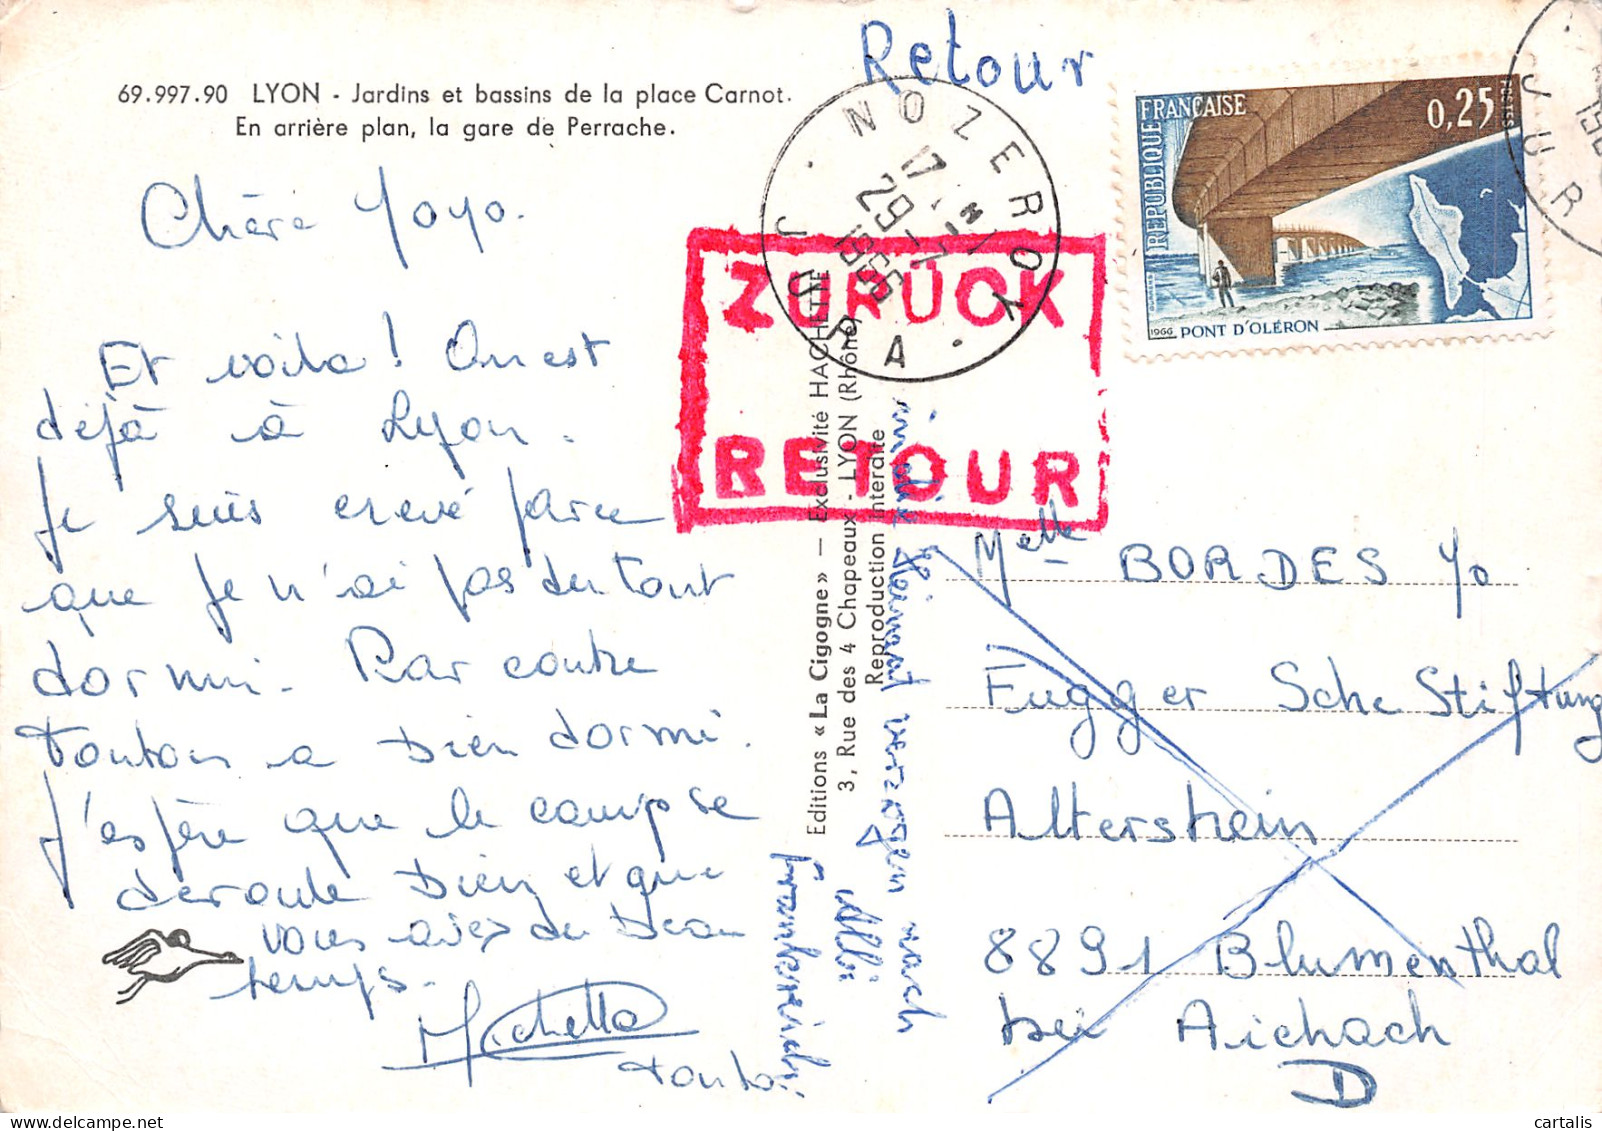 Retour
69.997.90 LYON - Jardins et bassins de la place Carnot.
En arrière plan, la gare de Perrache.
Chère Yoyo.
Et voila ! On est
déjà à Lyon.
Je suis crevé parce
que je n'ai pas du tout
dormi. Par contre
Tonton a bien dormi.
J'espère que le camp se
déroule bien et que
vous avez du beau
temps.
Michette
Tonton
NOZEROY
17 H
29-7
1966
JURA
ZURÜCK
RETOUR
Editions « La Cigogne » — Exclusivité HACHETTE
3, Rue des 4 Chapeaux - LYON (Rhône)
Reproduction interdite
in die Heimat verzogen nach
Frankreich
RÉPUBLIQUE
FRANÇAISE
0,25
POSTES
1966 PONT D'OLÉRON
JUR
Melle BORDES Yo
Fugger Sche Stiftung
Altershein
8891 Blumenthal
bei Aichach
D
cartalis
www.delcampe.net